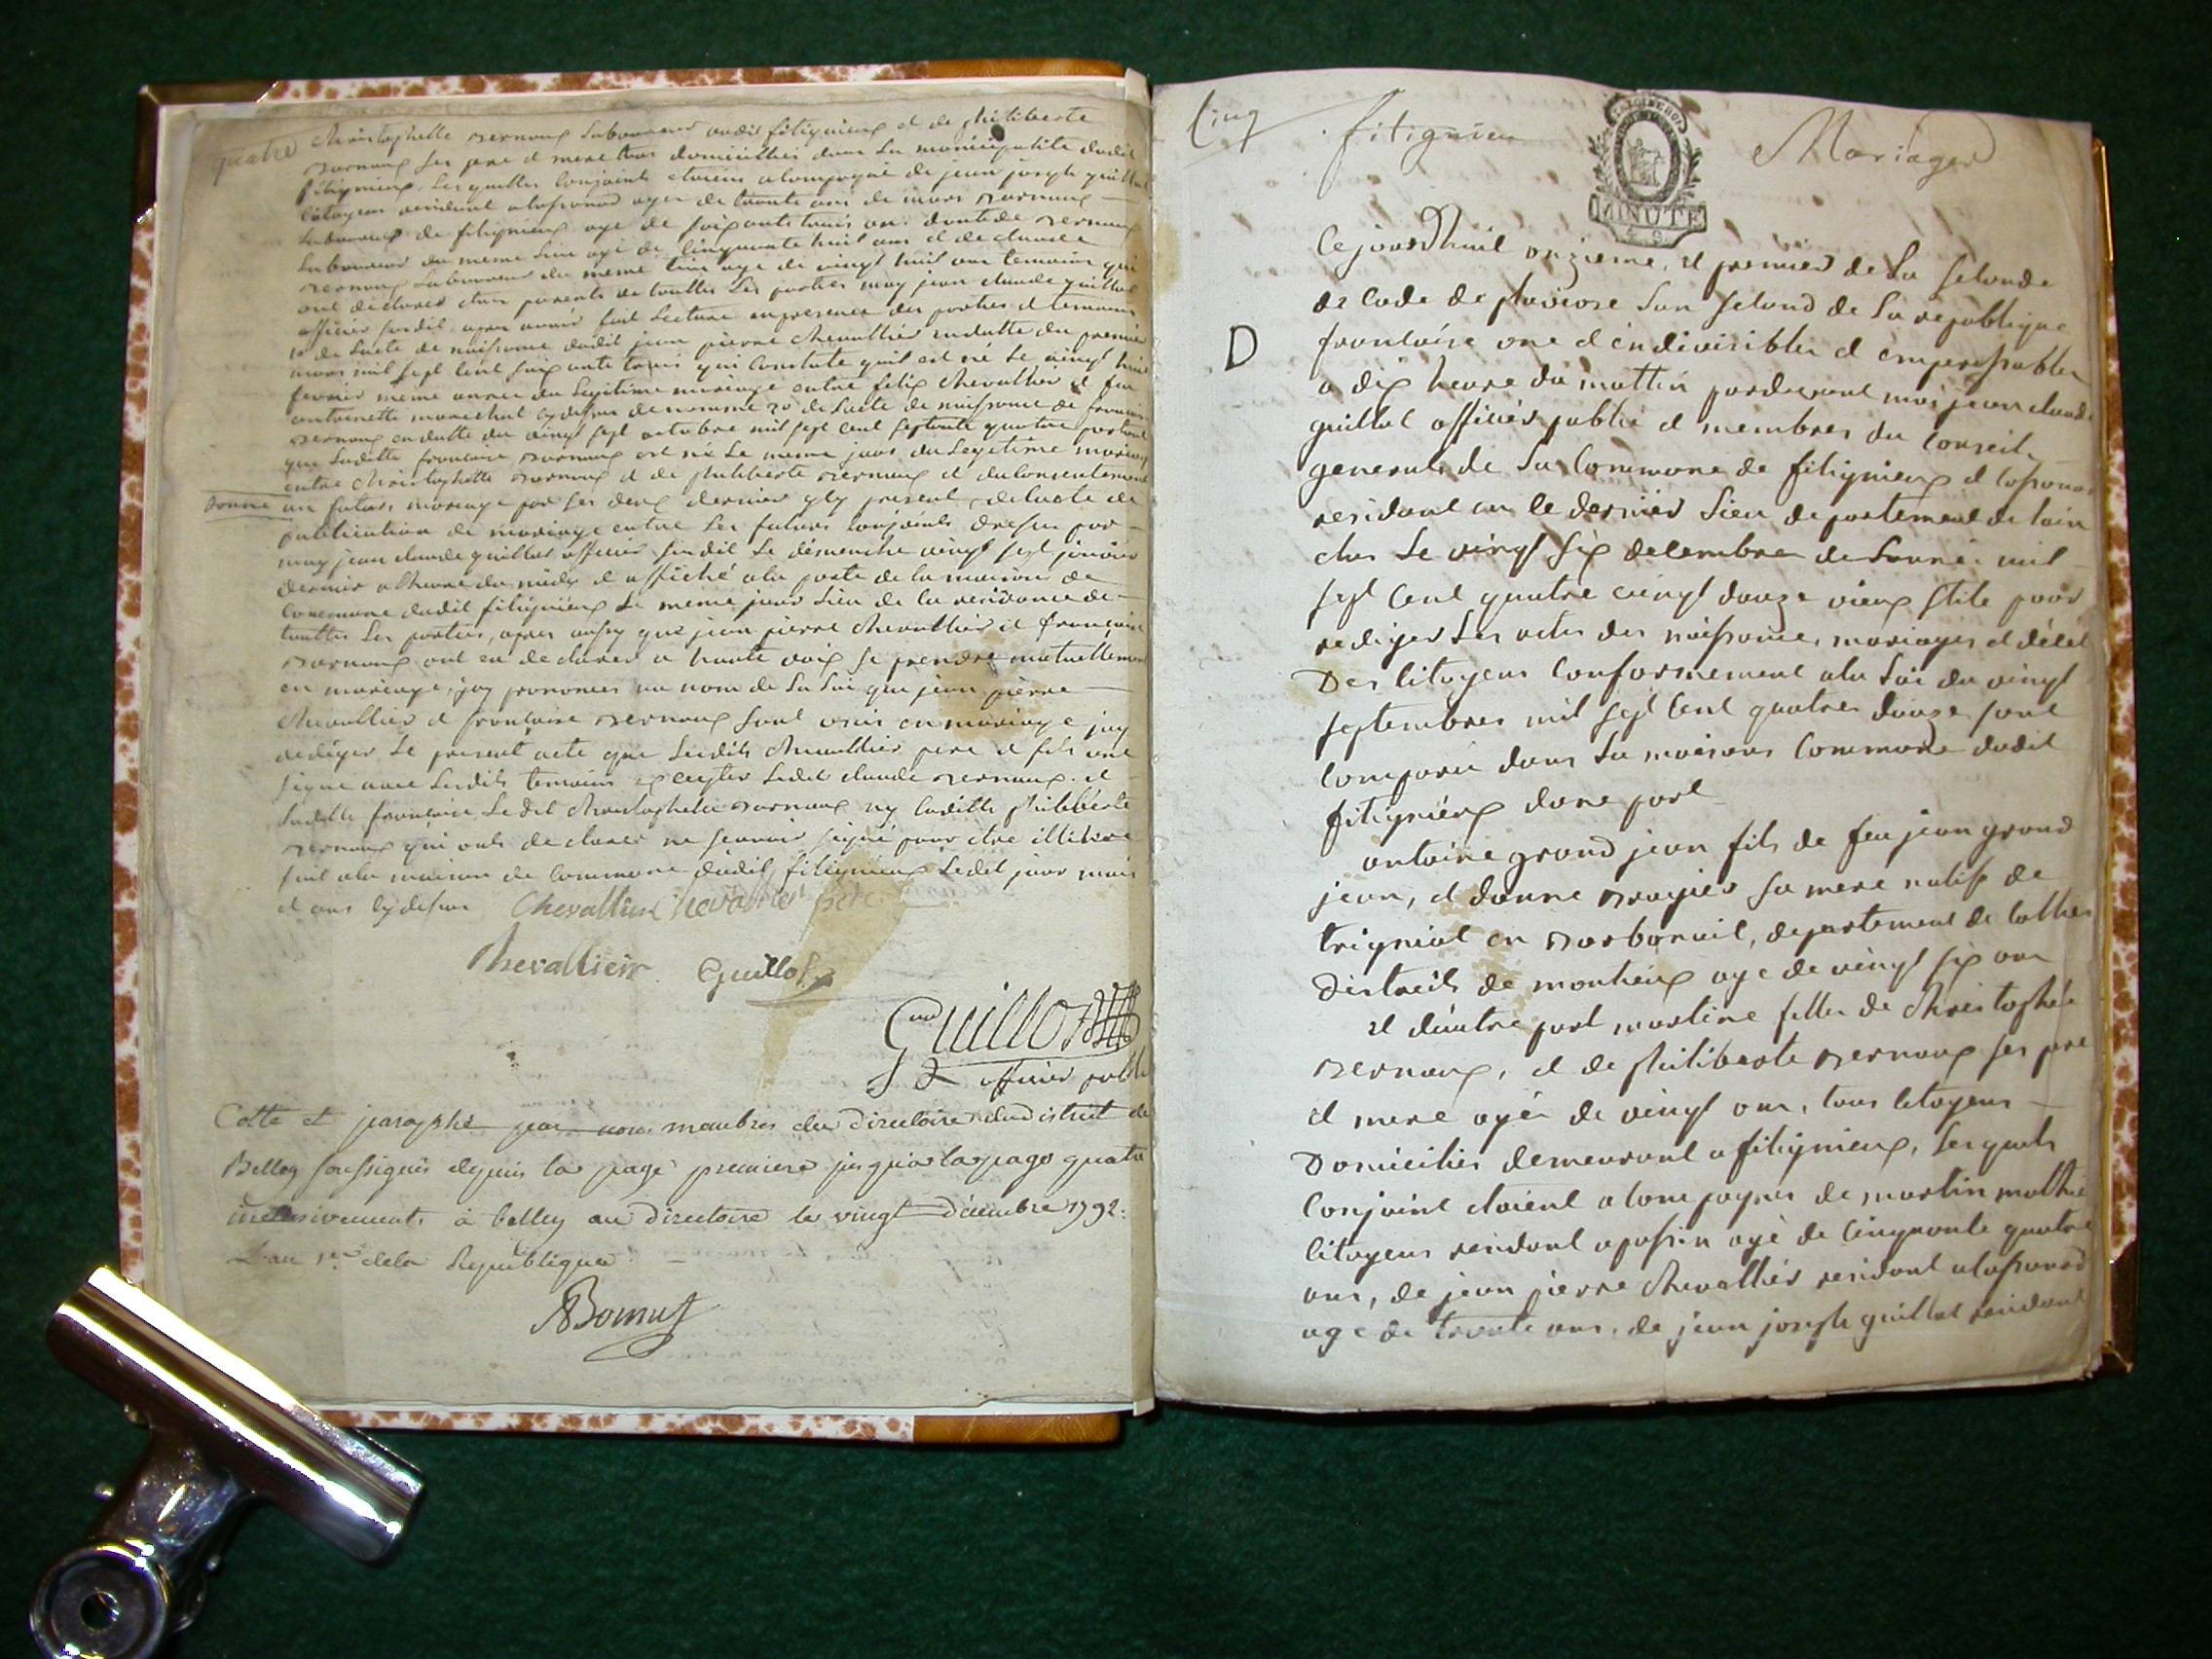 quatre
Christophelle Bernoux laboureur audit fitignieux et de philiberte
Bernoux ses pere et mere tous domicilliés dans la municipalité dudit
fitignieux, lesquelles conjoints etoient acompagné de jean joseph guillot
citoyen residant a lossonod agé de trente ans de mare Bernoux
laboureur de fitignieux agé de soixante trois ans dode Bernoux
laboureur du meme lieu agé de cinquante huit ans et de claude
Bernoux laboureur du meme lieu age de vingt huit ans temoins qui
ont declarer etre parents de touttes les parties moy jean claude guillot
officier susdit apres avoir fait lecture en presence des parties et temoins
1º de lacte de naissance dudit jean pierre chevallier en datte du premier
mars mil sept cent soixante trois qui constate quil est né le vingt huit
fevrier meme année du legitime mariage entre felix chevallier et feu
antoinette marechal cy dessus denommé 2º de lacte de naissance de francoise
Bernoux en datte du vingt sept octobre mil sept cent septante quatre portant
que laditte francoise Bernoux est né le meme jour du legitime mariage
entre Christophelle Bernoux et de philiberte Bernoux et du consentement
donné au futur mariage par les deux dernier yly present, de lacte de
publication de mariage entre les futurs conjoints dressé par
moy jean claude guillot officier susdit le demenche vingt sept janvier
dernier a lheure du midy et affiché a la porte de la maison de
commune dudit fitignieux le même jour lieu de la residance de
touttes les parties, apres aussy que jean pierre chevallier et francoise
Bernoux ont eu declarer a haute voix se prendre mutuellement
en mariage, jay prononcer au nom de la loi que jean pierre
chevallier et francoise Bernoux sont unis en mariage jay
rediger le present acte que lesdits chevallier pere et fils ont
signe avec lesdits temoins excepter ledit claude Bernoux et
laditte francoise ledit Christophelle Bernoux ny laditte philiberte
Bernoux qui ont declarer ne scavoir signé pour etre illitere
fait a la maison de commune dudit fitignieux ledit jour mois
et ans cy dessus Chevallier Chevallier pere
Chevallieir Guillot
Guillot
officier public
Cotte et paraphé par nous membres du Directoire du district de
Belley soussignés depuis la page premiere jusqu'a la page quatre
inclusivement, à belley au directoire le vingt décembre 1792.
L'an 1er dela Republique.
Cinq
fitignieu
MINUTE
Mariages
D
Cejourdhuit onzieme, et premier de la seconde
decade de pluviose lan second de la republique
francoise une et endivisibler et emperissabler
a dix heure du mattin pardevant moi jean claude
guillot officier public et membres du conseil
generals de la commune de fitignieux et lossonod
residant en le dernier lieu departement de lain
elus le vingt six decembre de lanné mil
sept cent quatre vingt douze vieux stile pour
rediger les actes des naissance, mariages et décés
Des citoyens conformement a la loi du vingt
septembres mil sept cent quatre douze sont
comparu dans la maisons commune dudit
fitignieux dune part
antoine grand jean fils de feu jean grand
jean, et danne Brogier sa mere natif de
trigniat en Borbonoit, departement de lallier
districts de montieux age de vingt six ans
et dautre part martine fillie de christophele
Bernoux, et de philiberte Bernoux ses pere
et mere agée de vingt ans, tous citoyens
Domicilies demeurant a fitignieux, lesquels
conjoint etoient a compagnés de martin mathie
citoyens residant a passin agé de cinquante quatre
ans, de jean pierre chevallier residant a lossonod
age de trente ans, de jean joseph guillot residant